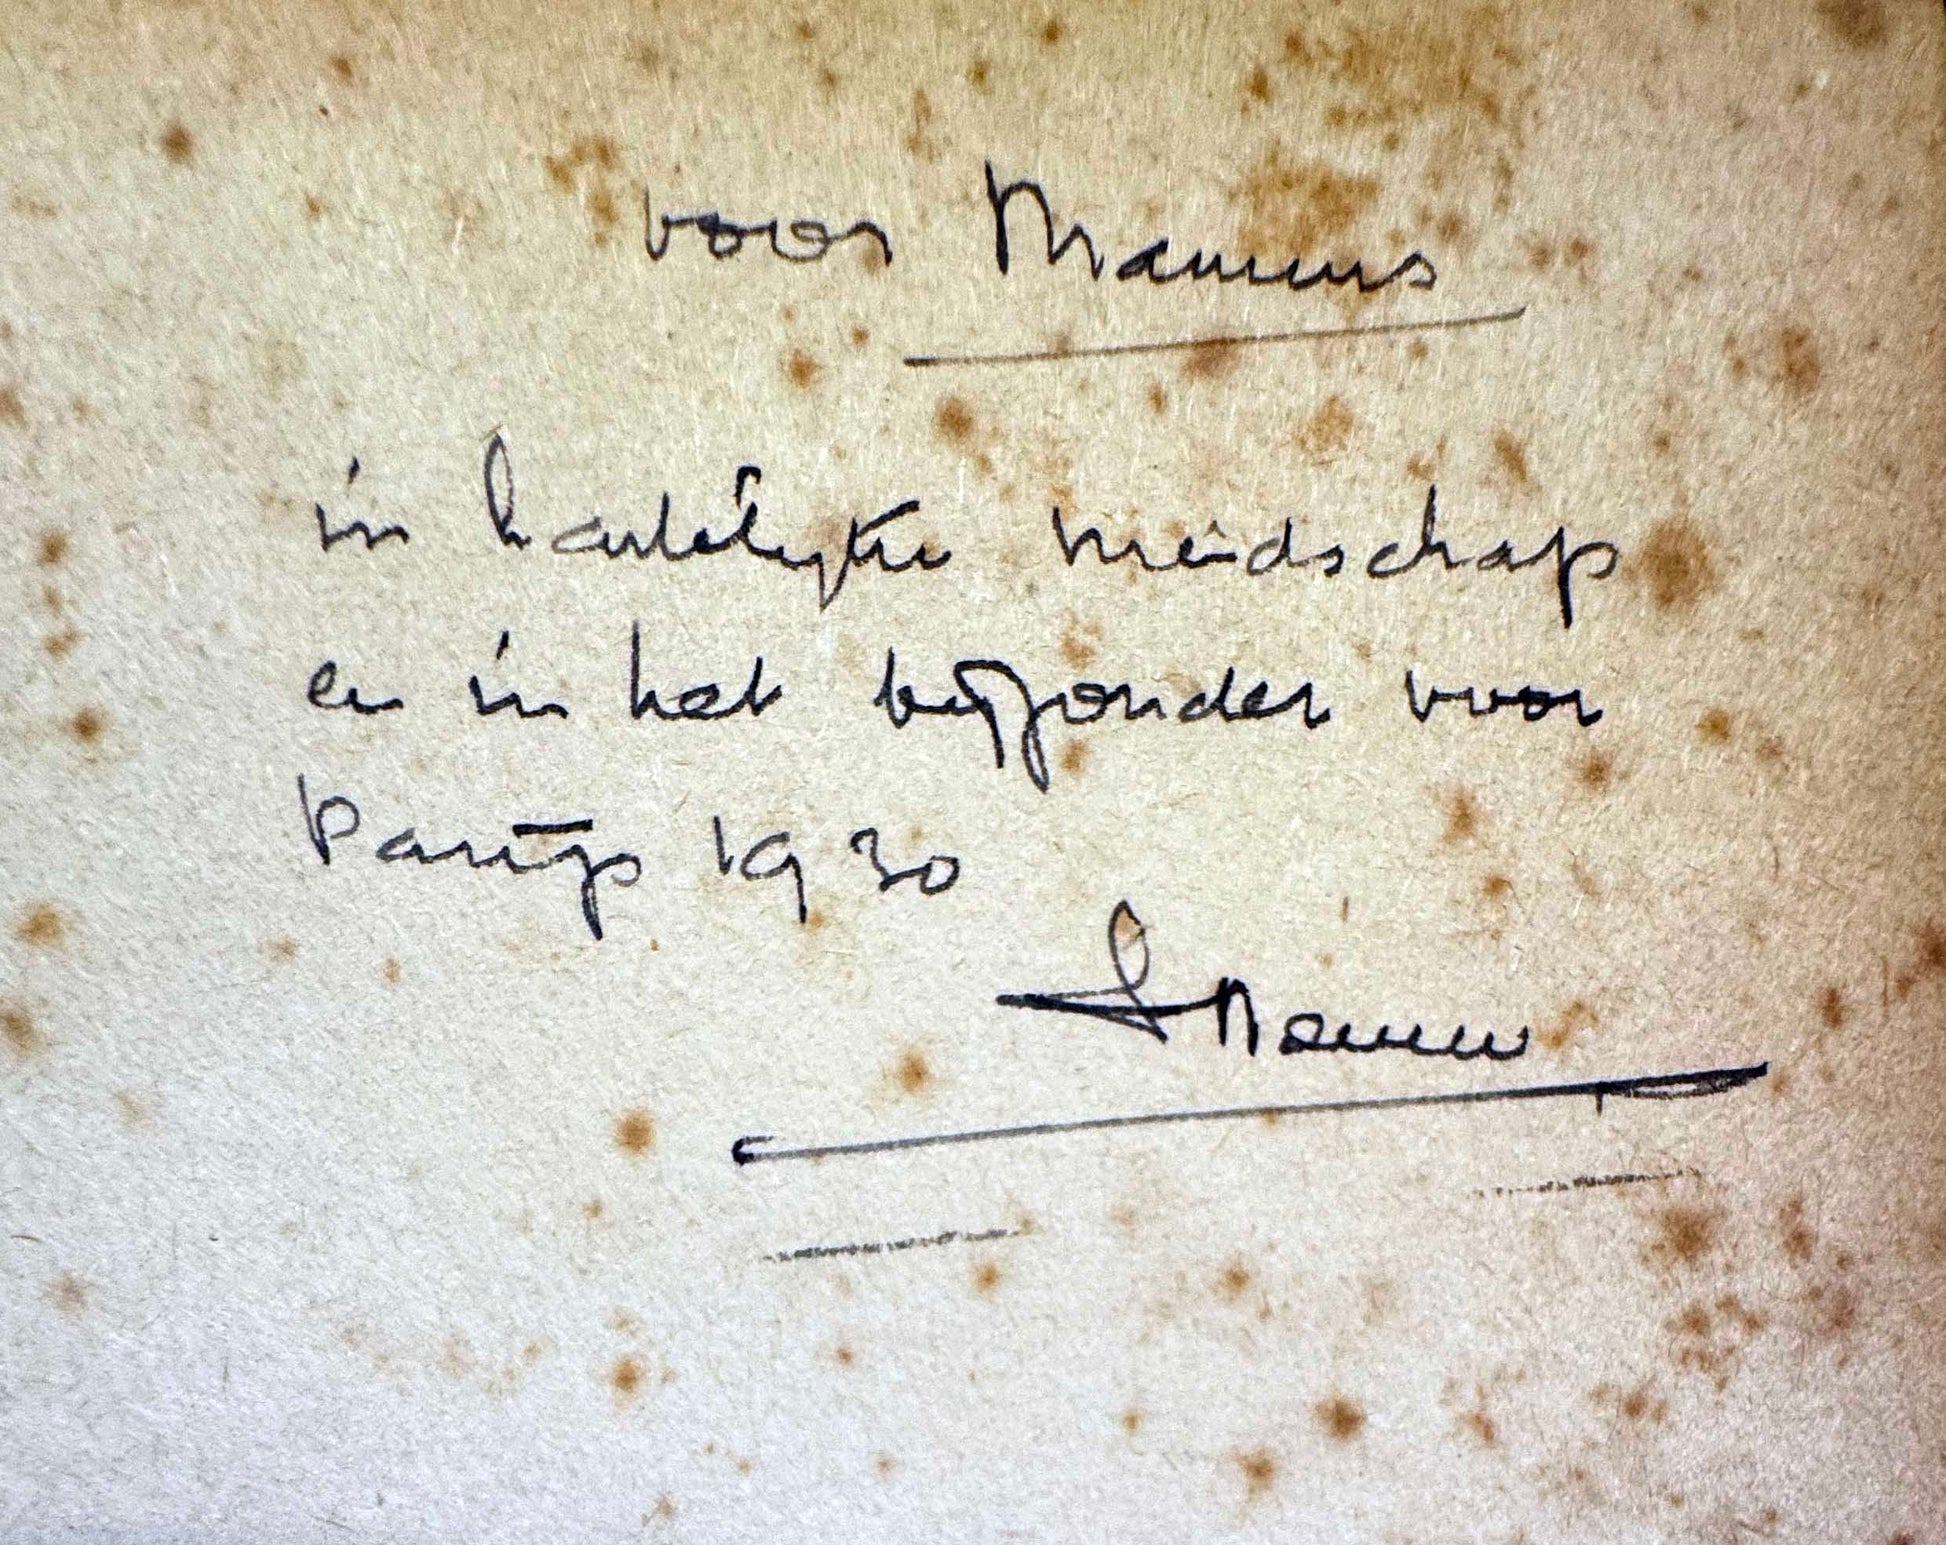 voor
in hartelijke vriendschap
en in het bijzonder voor
Parijs 1930